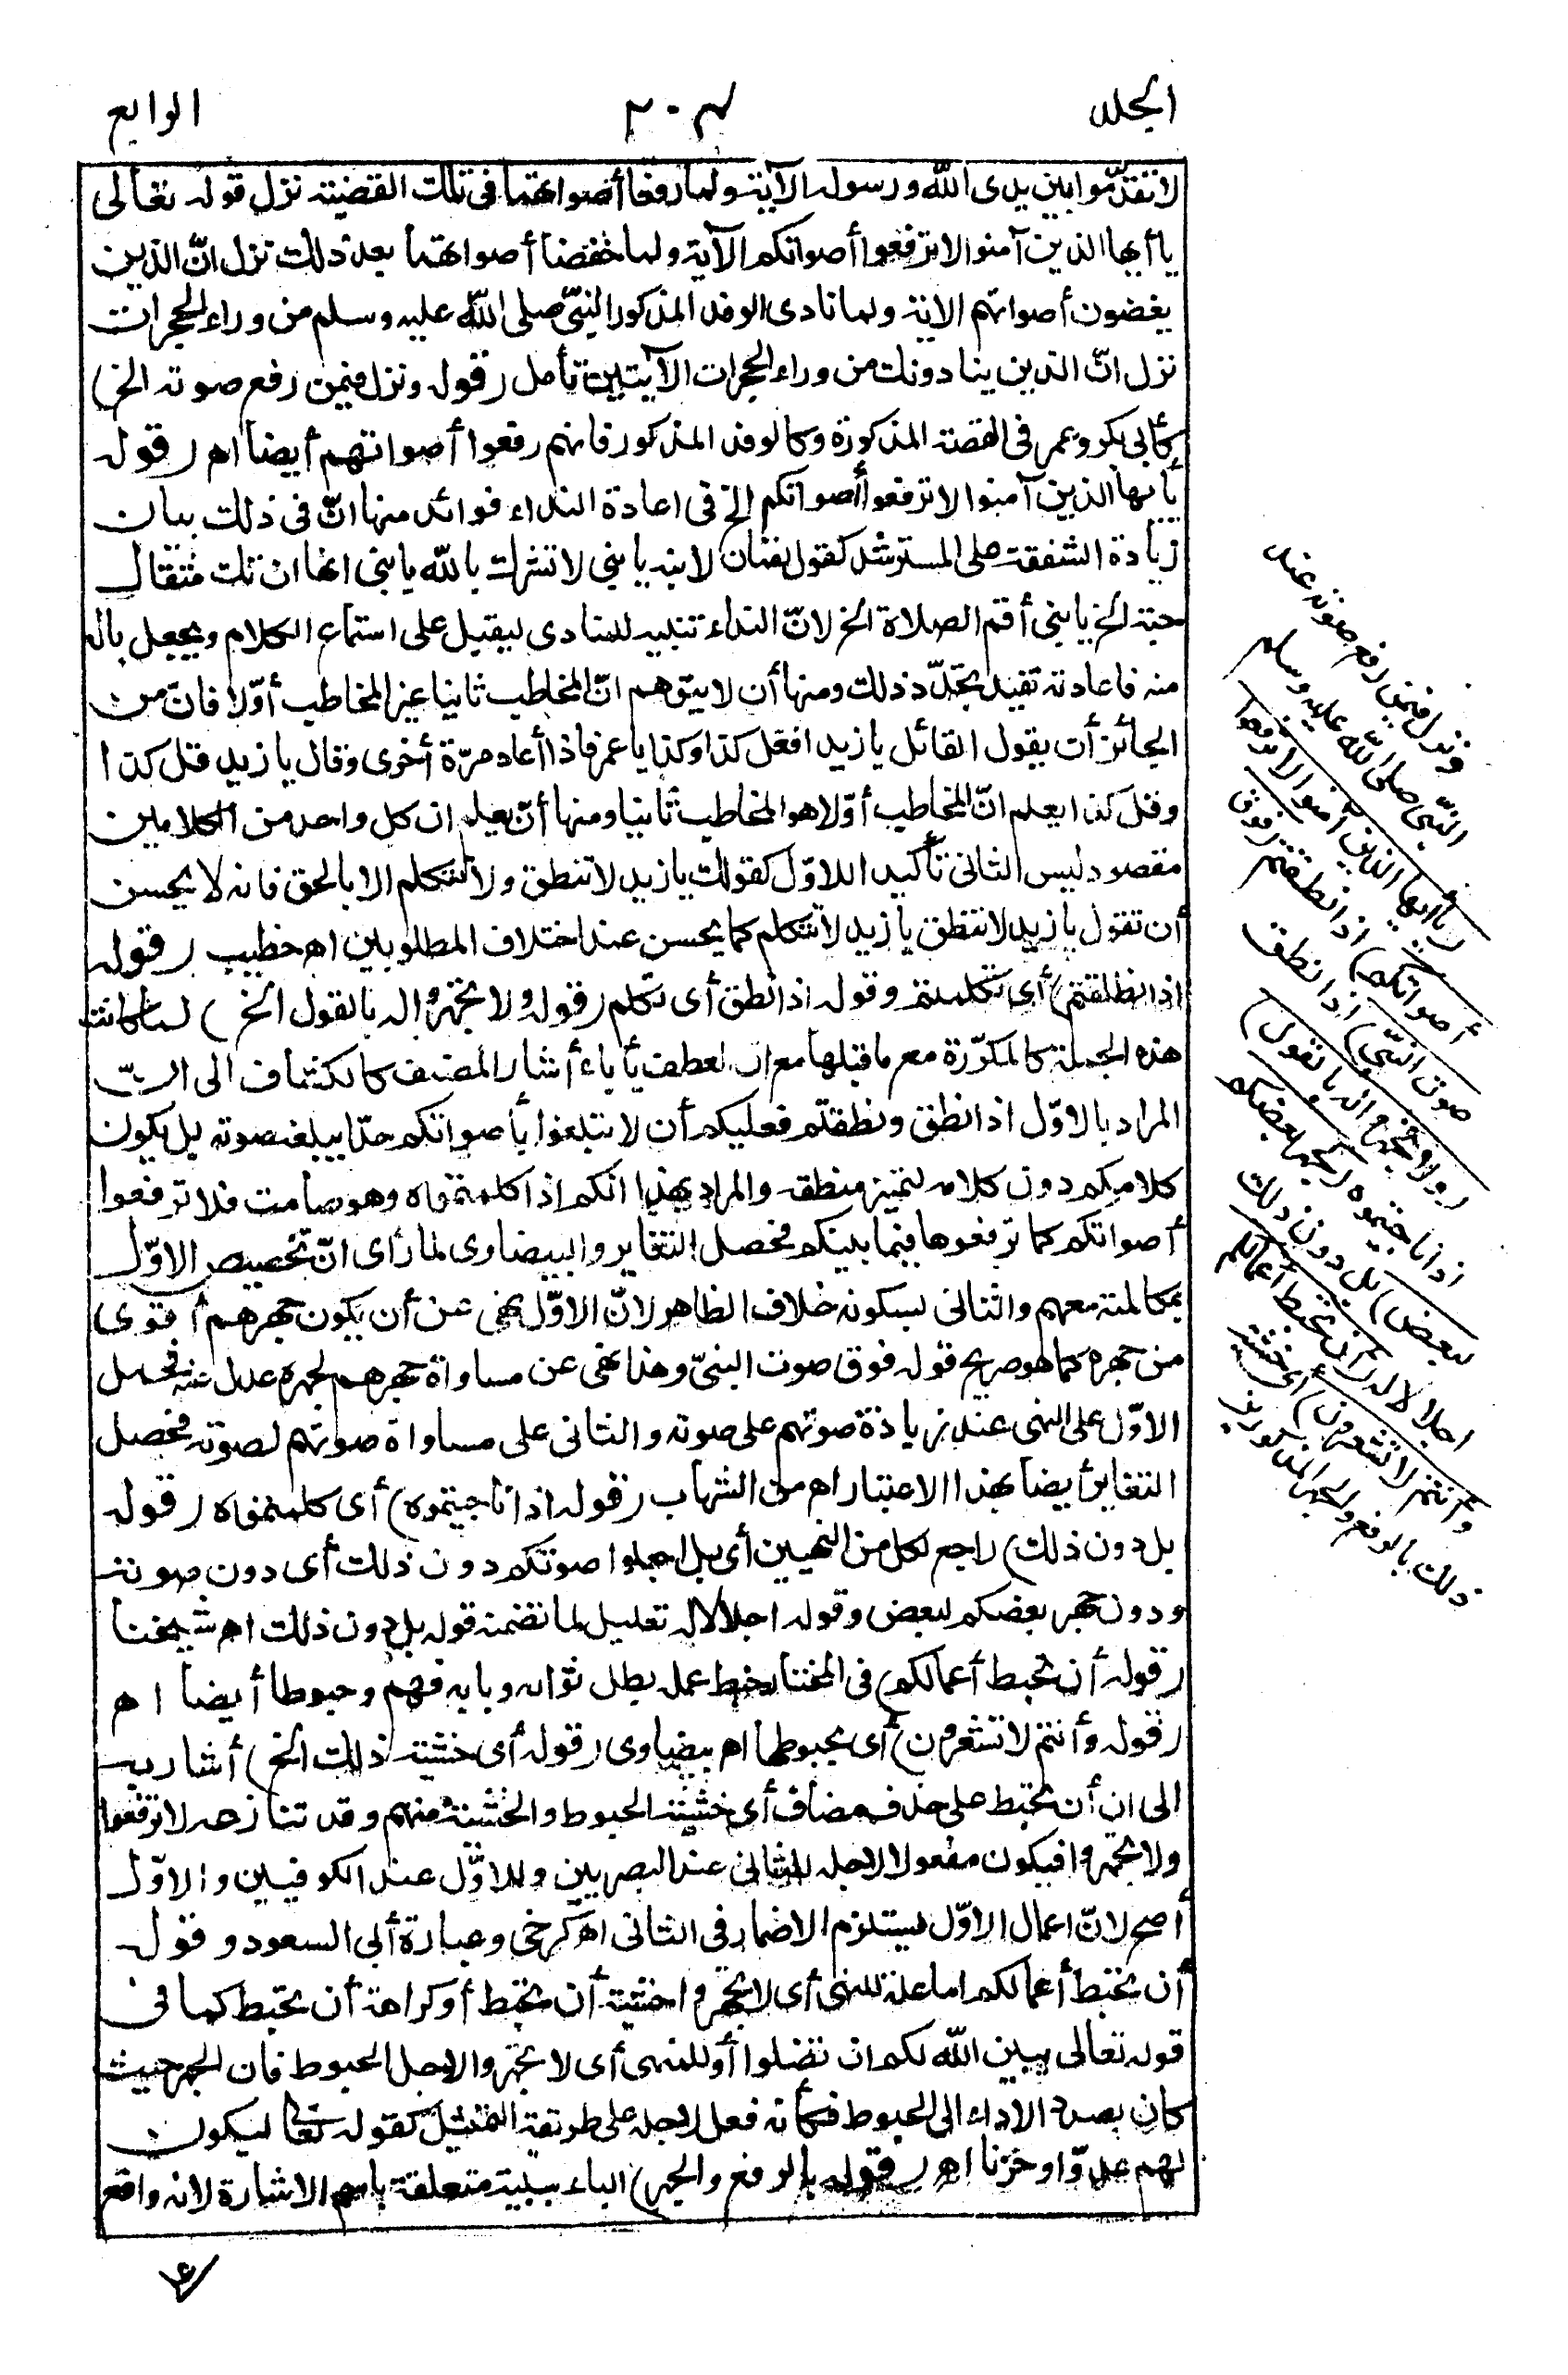 الجلد
٢٠٣
الرابع
لا تقدّموا بين يدى الله ورسوله الآية ولما رفعا أصواتهما فى تلك القضية نزل قوله تعالى
يا أيها الذين آمنوا لا ترفعوا أصواتكم الآية ولما خفضا أصواتهما بعد ذلك نزل انّ الذين
يغضون أصواتهم الاية ولما نادى الوفد المذكور النبىّ صلى الله عليه وسلم من وراء الحجرات
نزل انّ الذين ينادونك من وراء الحجرات الآيتين تأمل (قوله ونزل فيمن رفع صوته الخ)
كأبى بكر وعمر فى القصة المذكورة وكالوفد المذكور فانهم رفعوا أصواتهم أيضا اه (قوله
يا أيها الذين آمنوا لا ترفعوا أصواتكم الخ فى اعادة النداء فوائد منها انّ فى ذلك بيان
زيادة الشفقة على المسترشد كقول لقمان لابنه يا بنى لا تشرك بالله يا بنى انها ان تك مثقال
حبة الخ يا بنى أقم الصلاة الخ لانّ النداء تنبيه للمنادى ليقبل على استماع الكلام ويجعل باله
منه فاعادته تفيد تجدّد ذلك ومنها أن لا يتوهم انّ المخاطب ثانيا غير المخاطب أوّلا فانّ من
الجائز أن يقول القائل يا زيد افعل كذا وكذا يا عمر فاذا أعاد مرّة أخرى وقال يا زيد قل كذا
وقل كذا يعلم انّ المخاطب أوّلا هو المخاطب ثانيا ومنها أن يعلم ان كل واحد من الكلامين
مقصود ليس الثانى تأكيد اللاوّل كقولك يا زيد لا تنطق ولا تتكلم الا بالحق فانه لا يحسن
أن تقول يا زيد لا تنطق يا زيد لا تتكلم كما يحسن عند اختلاف المطلوبين اه خطيب (قوله
اذا نطقتم) أى تكلمتم وقوله اذا نطق أى تكلم (قوله ولا تجهروا له بالقول الخ) لما كانت
هذه الجملة كالمكرّرة مع ما قبلها مع ان العطف يأباه أشار المصنف كالكشاف الى انّ
المراد بالاوّل اذا نطق ونطقتم فعليكم أن لا تبلغوا بأصواتكم حدّا يبلغه صوته بل يكون
كلامكم دون كلامه ليتميز منطقه والمراد بهذا انكم اذا كلمتموه وهو صامت فلا ترفعوا
أصواتكم كما ترفعوها فيما بينكم فحصل التغاير والبيضاوى لما رأى انّ تخصيص الاوّل
بمكالمته معهم والثانى بسكوته خلاف الظاهر لانّ الاوّل نهى عن أن يكون جهرهم أقوى
من جهره كما هو صريح قوله فوق صوت النبىّ وهذا نهى عن مساواة جهرهم لجهره عدل عنه فحمل
الاوّل على النهى عند زيادة صوتهم على صوته والثانى على مساواة صوتهم لصوته فحصل
التغاير أيضا بهذا الاعتبار اه من الشهاب (قوله اذا ناجيتموه) أى كلمتموه (قوله
بل دون ذلك) راجع لكل من النهيين أى بل اجعلوا صوتكم دون ذلك أى دون صوته
ودون جهر بعضكم لبعض وقوله اجلالا له تعليل لما تضمنه قوله بل دون ذلك اه شيخنا
(قوله أن تحبط أعمالكم) فى المختار حبط عمله بطل ثوابه وبابه فهم وحبوطا أيضا اه
(قوله وأنتم لا تشعرون) أى بحبوطها اه بيضاوى (قوله أى خشية ذلك الخ) أشار به
الى ان أن تحبط على حذف مضاف أى خشية الحبوط والخشية منهم وقد تنازعه لا ترفعوا
ولا تجهروا فيكون مفعولا لاجله للثانى عند البصريين وللاوّل عند الكوفيين والاوّل
أصح لانّ اعمال الاوّل يستلزم الاضمار فى الثانى اه كرخى وعبارة أبى السعود وقوله
أن تحبط أعمالكم اما علة للنهى أى لا تجهروا خشية أن تحبط أو كراهة أن تحبط كما فى
قوله تعالى يبين الله لكم ان تضلوا أو للمنهى أى لا تجهروا لاجل الحبوط فان الجهر حيث
كان بصدد الاداء الى الحبوط فكأنه فعل لاجله على طريقة التمثيل كقوله تعالى ليكون
لهم عدوّا وحزنا اه (قوله بالرفع والجهر) الباء سببية متعلقة باسم الاشارة لانه واقع
ونزل فيمن رفع صوته عند
النبىّ صلى الله عليه وسلم
(يا أيها الذين آمنوا لا ترفعوا
أصواتكم) اذا نطقتم (فوق
صوت النبىّ) اذا نطق
(ولا تجهروا له بالقول)
اذا ناجيتموه (كجهر بعضكم
لبعض) بل دون ذلك
اجلالا له (أن تحبط أعمالكم
وأنتم لا تشعرون) أى خشية
ذلك بالرفع والجهر المذكورين